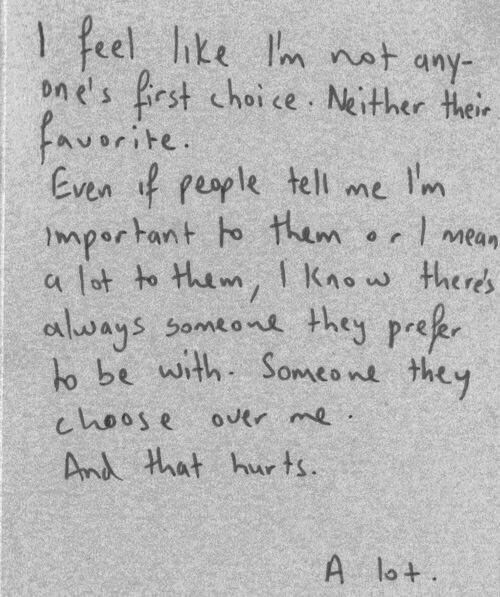 I feel like I'm not any-
one's first choice. Neither their
favorite.
Even if people tell me I'm
important to them or I mean
a lot to them, I know there's
always someone they prefer
to be with. Someone they
choose over me.
And that hurts.
A lot.